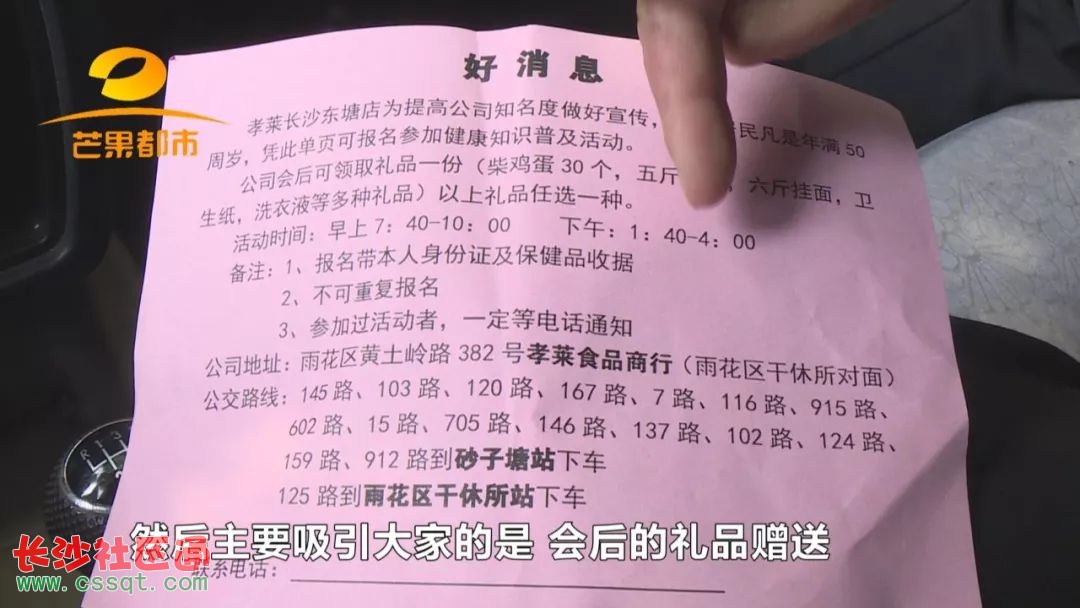 好消息
芒果都市
孝莱长沙东塘店为提高公司知名度做好宣传，民凡是年满50
周岁，凭此单页可报名参加健康知识普及活动。
公司会后可领取礼品一份（柴鸡蛋30个，五斤，六斤挂面，卫
生纸，洗衣液等多种礼品）以上礼品任选一种。
活动时间：早上7：40-10：00 下午：1：40-4：00
备注：1、报名带本人身份证及保健品收据
2、不可重复报名
3、参加过活动者，一定等电话通知
公司地址：雨花区黄土岭路382号孝莱食品商行（雨花区干休所对面）
公交路线：145路、103路、120路、167路、7路、116路、915路、
602路、15路、705路、146路、137路、102路、124路、
159路、912路到砂子塘站下车
125路到雨花区干休所站下车
然后主要吸引大家的是 会后的礼品赠送
长沙社区通
www.cssqt.com
联系电话：